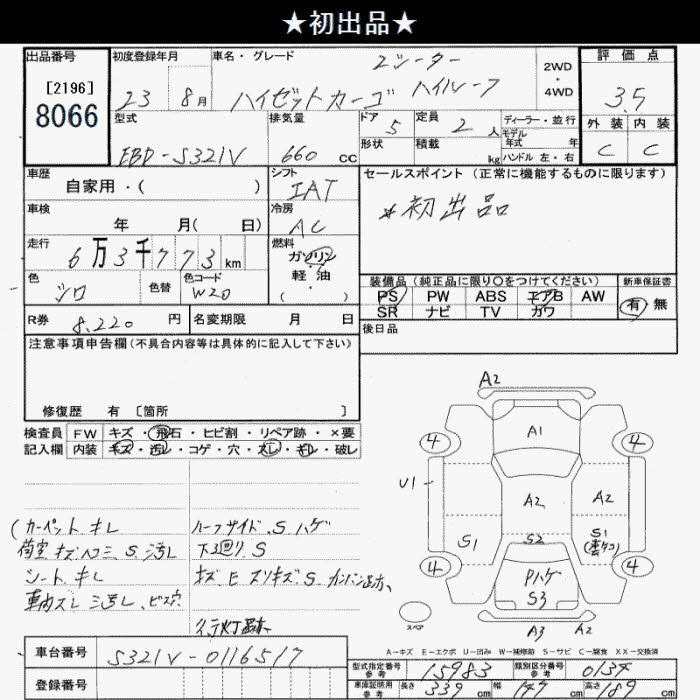 ★初出品★
出品番号 初度登録年月 車名・グレード 2シーター 2WD・4WD 評価点
[2196] 8066 23 8月 ハイゼットカーゴ ハイルーフ 3.5
型式 排気量 ドア 5 定員 2人 ディーラー・並行 外装 内装
EBD-S321V 660 CC 形状 積載 kg モデル年式 年 ハンドル 左・右 C C
車歴 シフト セールスポイント (正常に機能するものに限ります)
自家用・( ) IAT
車検 冷房 *初出品
年 月( 日) AC
走行 6万3千773km 燃料
ガソリン
軽・油
( )
色 シロ 色替 色コード W20
装備品 (純正品に限り○をつけてください) 新車保証書
PS PW ABS エアB AW 有 無
SR ナビ TV カワ
R券 8,220 円 名変期限 月 日 後日品
注意事項申告欄(不具合内容等は具体的に記入して下さい)
修復歴 有 〔箇所 〕
検査員 FW キズ・飛石・ヒビ割・リペア跡・×要
記入欄 内装 キズ・汚レ・コゲ・穴・スレ・キレ・破レ
A2
A1
4 4
U1
A2 A2
S1 S2 S1
4 4
Pハゲ
S3
A3 A2
スペア
(カーペット キレ ルーフサイド.S.ハゲ
荷室 キズ ヘコミ S.汚レ 下回り S
シート.キレ キズ E スリキズ.S カンバン跡
車内スレ 汚レ、ビス穴
行灯跡
A-キズ E-エクボ U-凹み W-補修跡 S-サビ C-腐食 XX-交換済
車台番号 S321V-0116517
登録番号
型式指定番号 参考 15983 類別区分番号 参考 0134
車庫証明用 参考 長さ 339 cm 幅 147 cm 高さ 189 cm